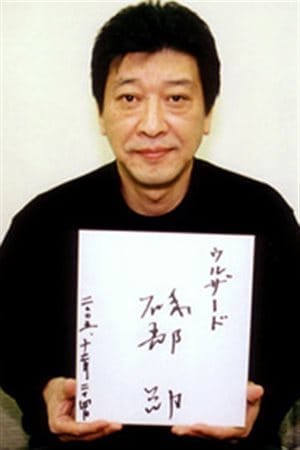 ウルザード
磯部 勉
二〇〇五、十二月二十四日